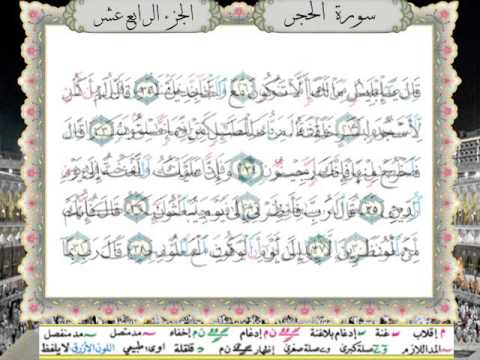 سورة الحجر الجزء الرابع عشر
قال يإبليس ما لك ألا تكون مع الساجدين ٣٢ قال لم أكن
لأسجد لبشر خلقته من صلصال من حمإ مسنون ٣٣ قال
فاخرج منها فإنك رجيم ٣٤ وإن عليك اللعنة إلى يوم
الدين ٣٥ قال رب فأنظرني إلى يوم يبعثون ٣٦ قال فإنك
من المنظرين ٣٧ إلى يوم الوقت المعلوم ٣٨ قال رب بما
م إقلاب غنة إدغام بلاغنة ن م إدغام ن م إخفاء مد متصل مد منفصل
المد اللازم صلة كبرى صلة صغرى إظهار ن م قلقلة اوى طبيعي اللون الأزرق لا يلفظ